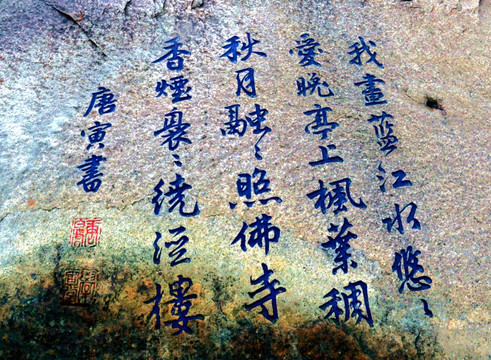 我畫蓝江水悠〻
愛晚亭上楓葉稠
秋月融〻照佛寺
香煙裊〻绕迳樓
唐寅書